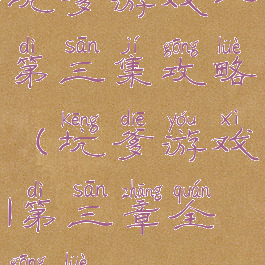 坑爹游戏
dì sān jí gōng lüè
第三集攻略
kēng diē yóu xì
(坑爹游戏
dì sān zhāng quán
|第三章全
gōng lüè